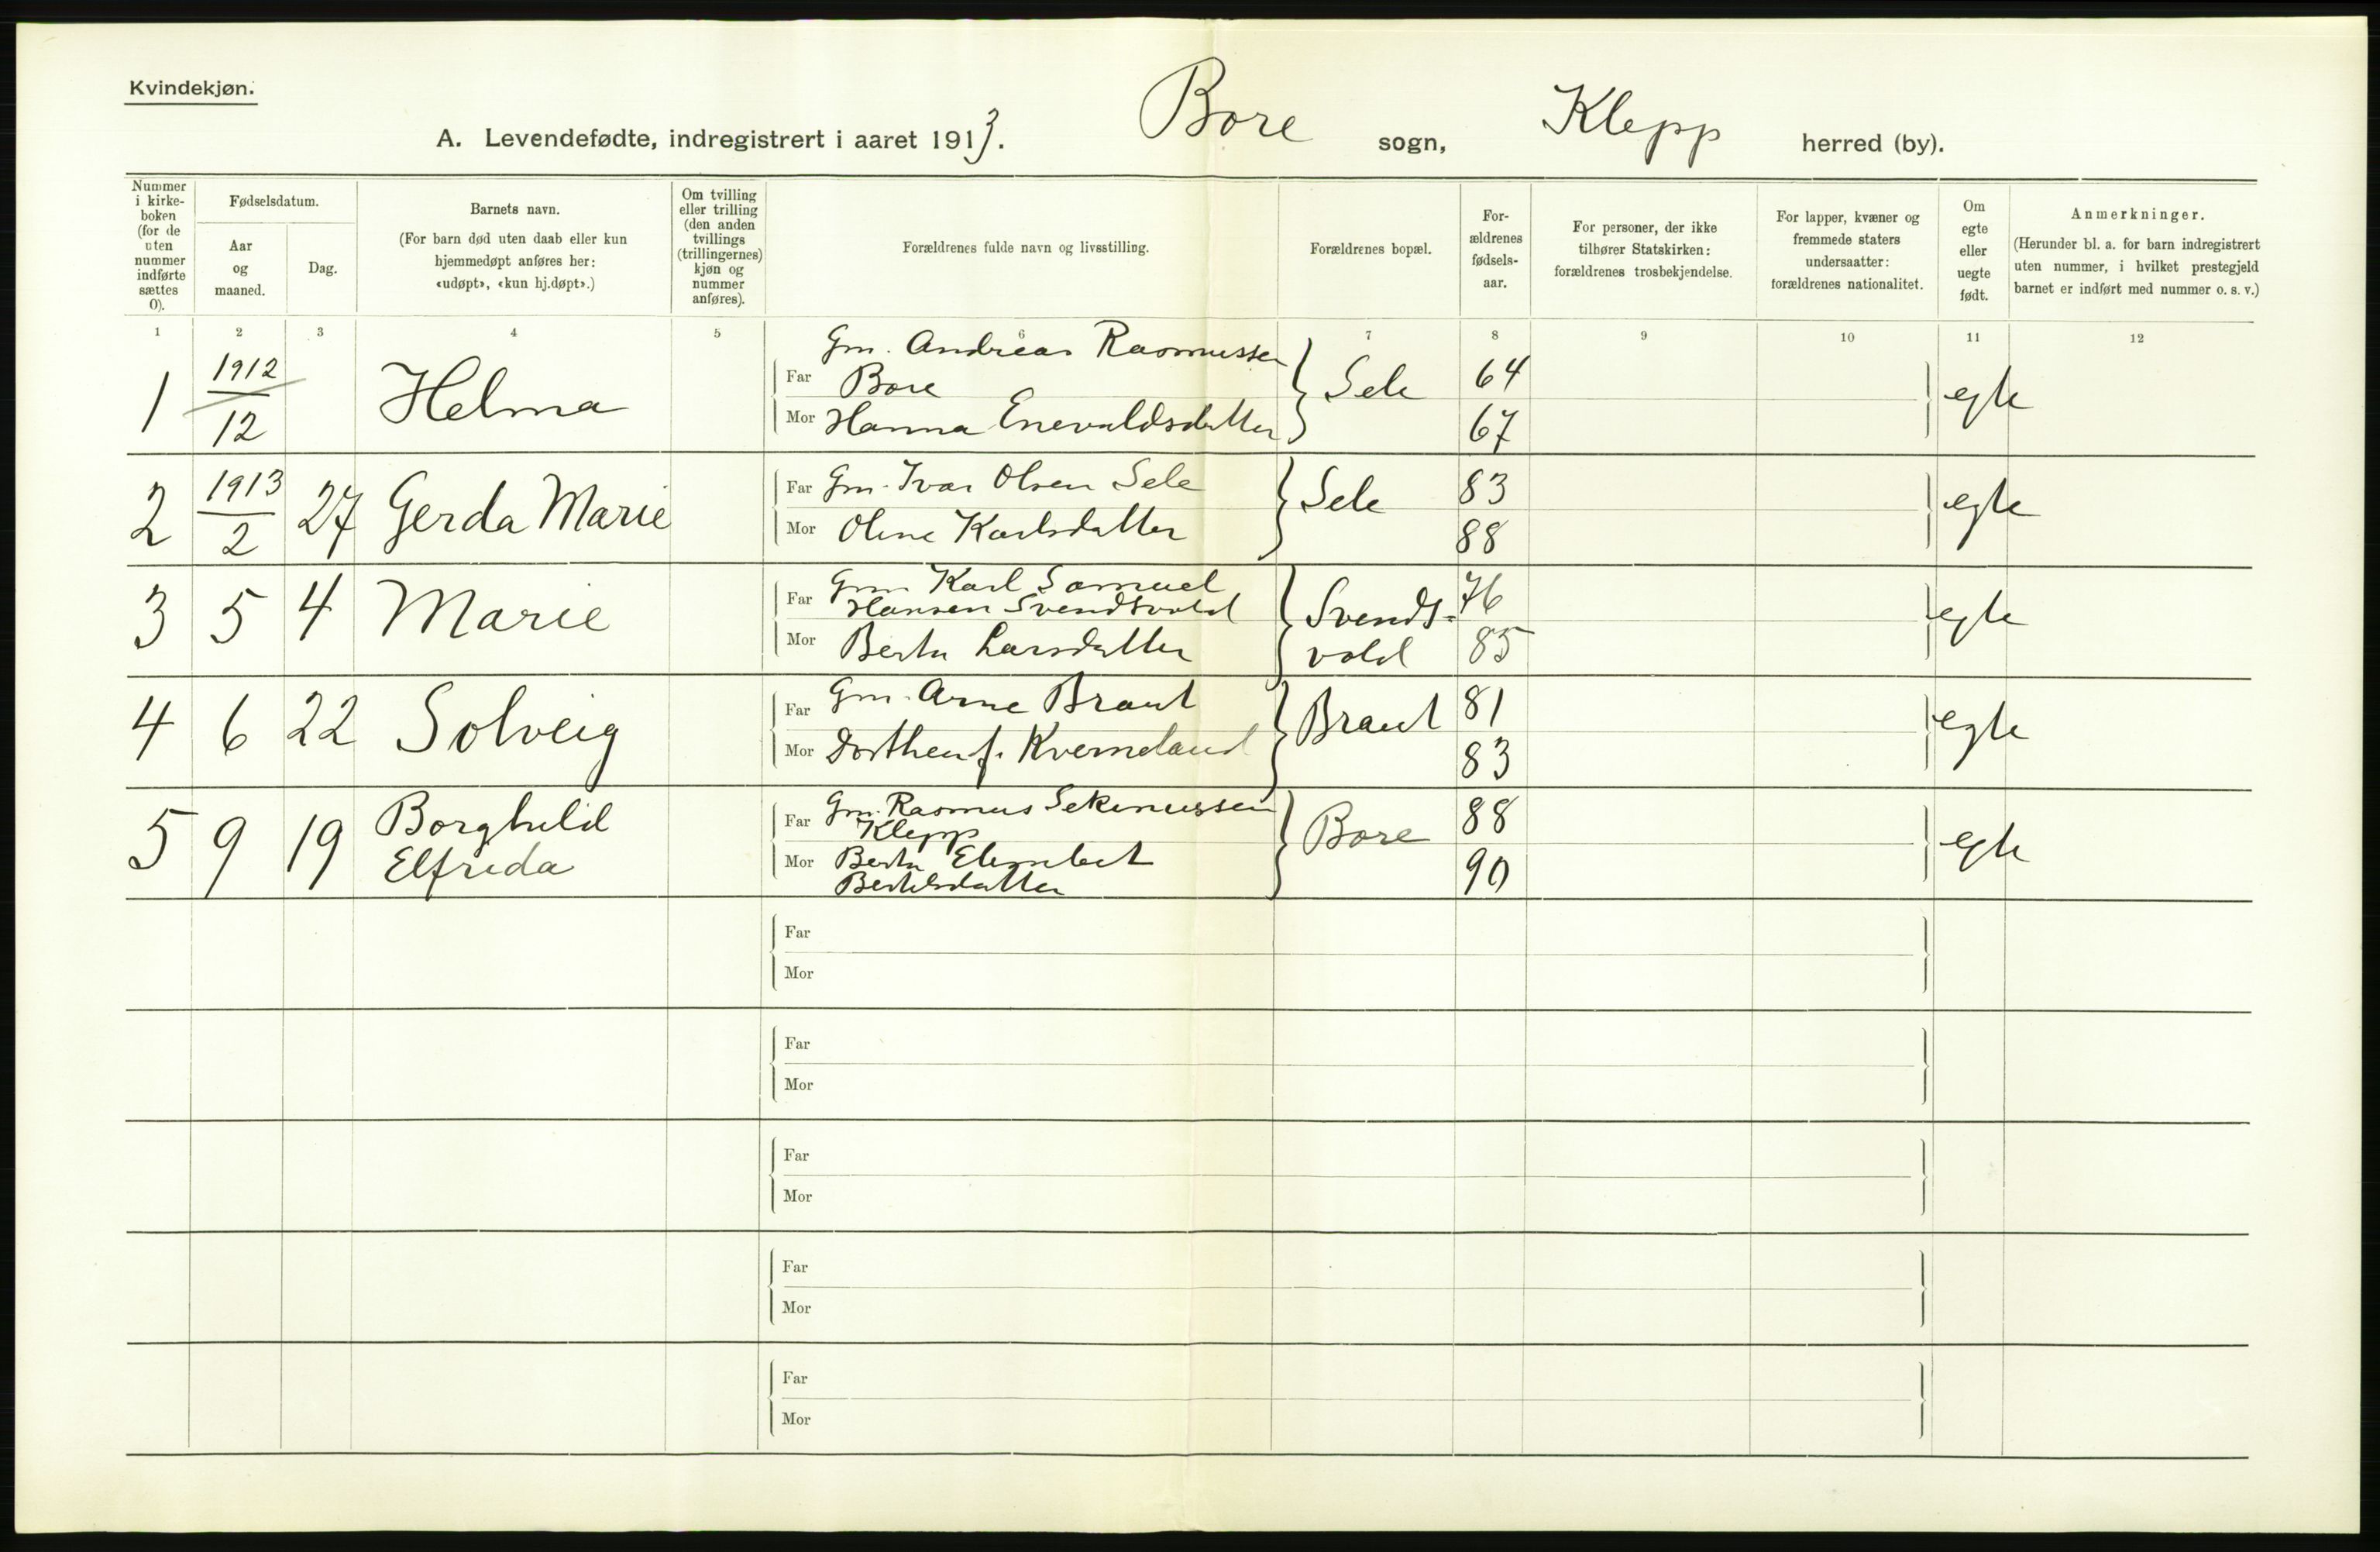 Kvindekjøn.
A. Levendefødte, indregistrert i aaret 1913. Bore sogn, Klepp herred (by).
Nummer
i kirke-
boken
(for de
uten
nummer
indførte
sættes
0).
Fødselsdatum.
Aar
og
maaned.
Dag.
Barnets navn.
(For barn død uten daab eller kun
hjemmedøpt anføres her:
«udøpt», «kun hj.døpt».)
Om tvilling
eller trilling
(den anden
tvillings
(trillingernes)
kjøn og
nummer
anføres).
Forældrenes fulde navn og livsstilling.
Forældrenes bopæl.
For-
ældrenes
fødsels-
aar.
For personer, der ikke
tilhører Statskirken:
forældrenes trosbekjendelse.
For lapper, kvæner og
fremmede staters
undersaatter:
forældrenes nationalitet.
Om
egte
eller
uegte
født.
Anmerkninger.
(Herunder bl. a. for barn indregistrert
uten nummer, i hvilket prestegjeld
barnet er indført med nummer o. s. v.)
1 2 3 4 5 6 7 8 9 10 11 12
1 1912
12 Helma
Gm. Andreas Rasmussen
Far Bore
Mor Hanna Enevaldsdatter
Sele 64
67
egte
2 1913
2 27 Gerda Marie
Far Gm. Ivar Olsen Sele
Mor Oline Karlsdatter
Sele 83
88
egte
3 5 4 Marie
Far Gm Karl Samuel
Hansen Svendsvold
Mor Berta Larsdatter
Svends-
vold
76
85
egte
4 6 22 Solveig
Far Gm. Arne Braut
Mor Dorthea f. Kverneland
Braut 81
83
egte
5 9 19 Borghild
Elfrida
Far Gm. Rasmus Sekimussen
Klepp
Mor Berta Elisabet
Bertelsdatter
Bore 88
90
egte
Far
Mor
Far
Mor
Far
Mor
Far
Mor
Far
Mor